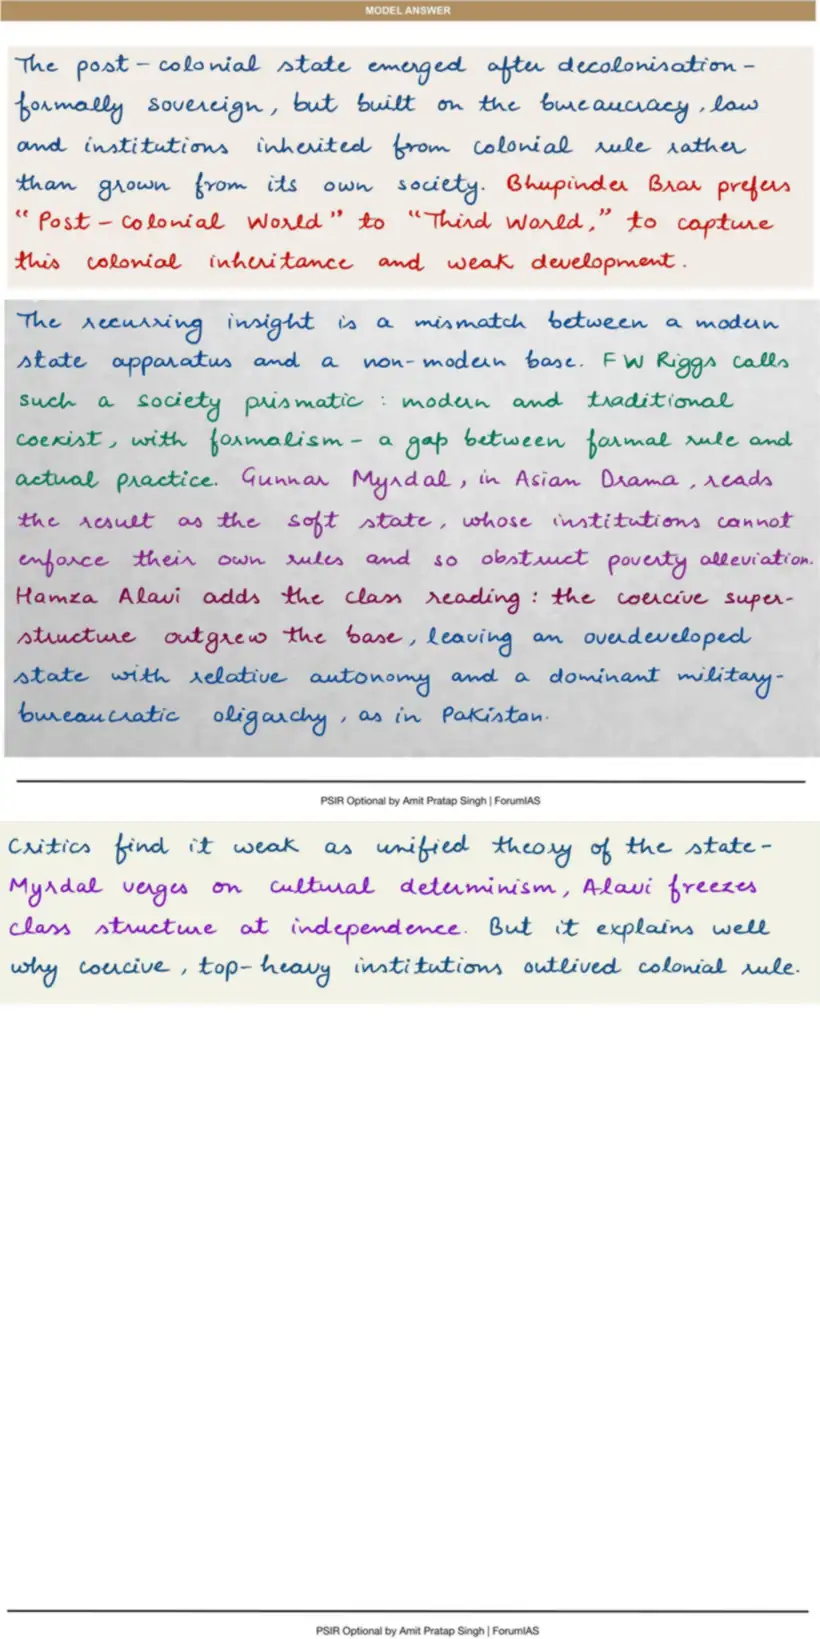 MODEL ANSWER
The post-colonial state emerged after decolonisation -
formally sovereign, but built on the bureaucracy, law
and institutions inherited from colonial rule rather
than grown from its own society. Bhupinder Brar prefers
"Post-Colonial World" to "Third World," to capture
this colonial inheritance and weak development.
The recurring insight is a mismatch between a modern
state apparatus and a non-modern base. F W Riggs calls
such a society prismatic : modern and traditional
coexist, with formalism - a gap between formal rule and
actual practice. Gunnar Myrdal, in Asian Drama, reads
the result as the soft state, whose institutions cannot
enforce their own rules and so obstruct poverty alleviation.
Hamza Alavi adds the class reading : the coercive super-
structure outgrew the base, leaving an overdeveloped
state with relative autonomy and a dominant military-
bureaucratic oligarchy, as in Pakistan.
PSIR Optional by Amit Pratap Singh | ForumIAS
Critics find it weak as unified theory of the state -
Myrdal verges on cultural determinism, Alavi freezes
class structure at independence. But it explains well
why coercive, top-heavy institutions outlived colonial rule.
PSIR Optional by Amit Pratap Singh | ForumIAS